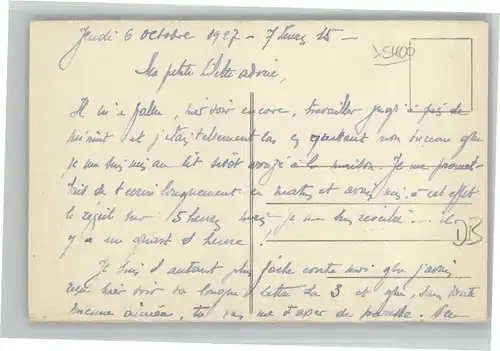 Jeudi 6 octobre 1927 - 7 heures 15 -
Ma petite adorée,
Il m'a fallu, hier soir encore, travailler jusqu'à près de
minuit et j'étais tellement las en quittant mon bureau que
je me suis mis au lit sitôt arrivé à la maison. Je me promet-
tais de t'écrire longuement ce matin et avais mis, à cet effet
le réveil sur 5 heures mais je me suis réveillé ... il
y a un quart d'heure.
Je suis d'autant plus fâché contre moi que j'avais
reçu hier soir ta longue lettre du 3 et que, sans doute
mienne aimée, tu vas me taxer de paresse.
DB